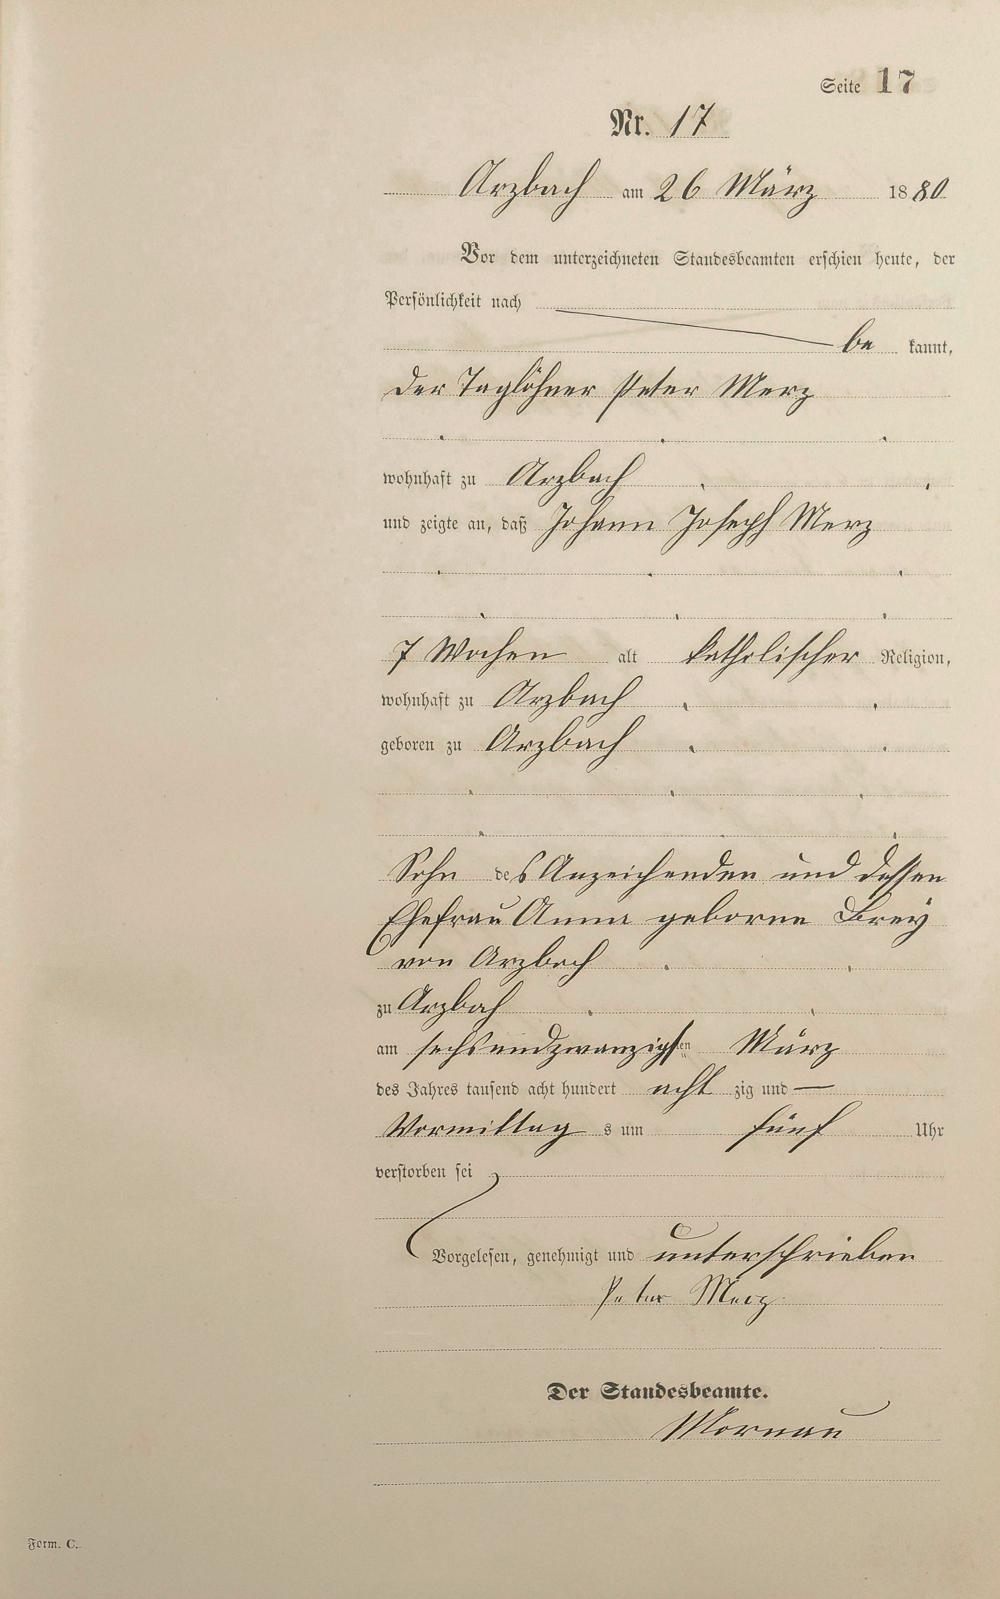 Seite 17
Nr. 17
Arzbach am 26 März 1880
Vor dem unterzeichneten Standesbeamten erschien heute, der
Persönlichkeit nach
be kannt,
der Taglöhner Peter Merz
wohnhaft zu Arzbach
und zeigte an, daß Johann Joseph Merz
7 Wochen alt katholischer Religion,
wohnhaft zu Arzbach
geboren zu Arzbach
Sohn des Anzeichenden und dessen
Ehefrau Anna geborne Brey
von Arzbach
zu Arzbach
am sechsundzwanzigsten März
des Jahres tausend acht hundert acht zig und —
Vormittag s um fünf Uhr
verstorben sei
Vorgelesen, genehmigt und unterschrieben
Peter Merz
Der Standesbeamte.
Mornau
Form. C.